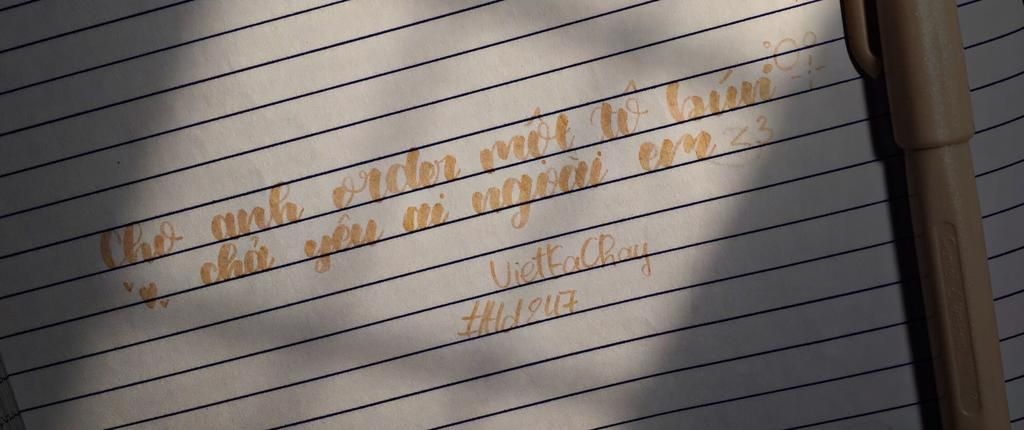 Cho anh order một tô bún
chả yêu ai ngoài em <3
VietFaChay
#Hd247